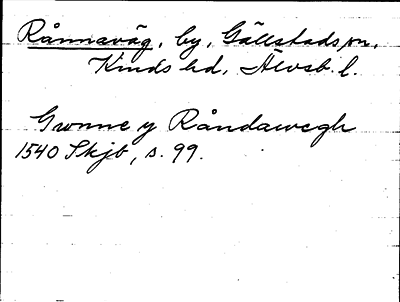 Rånnaväg, by, Gällstads sn,
Kinds hd, Älvsb. l.
Gunne y Råndawegh
1540 Skjb, s. 99.